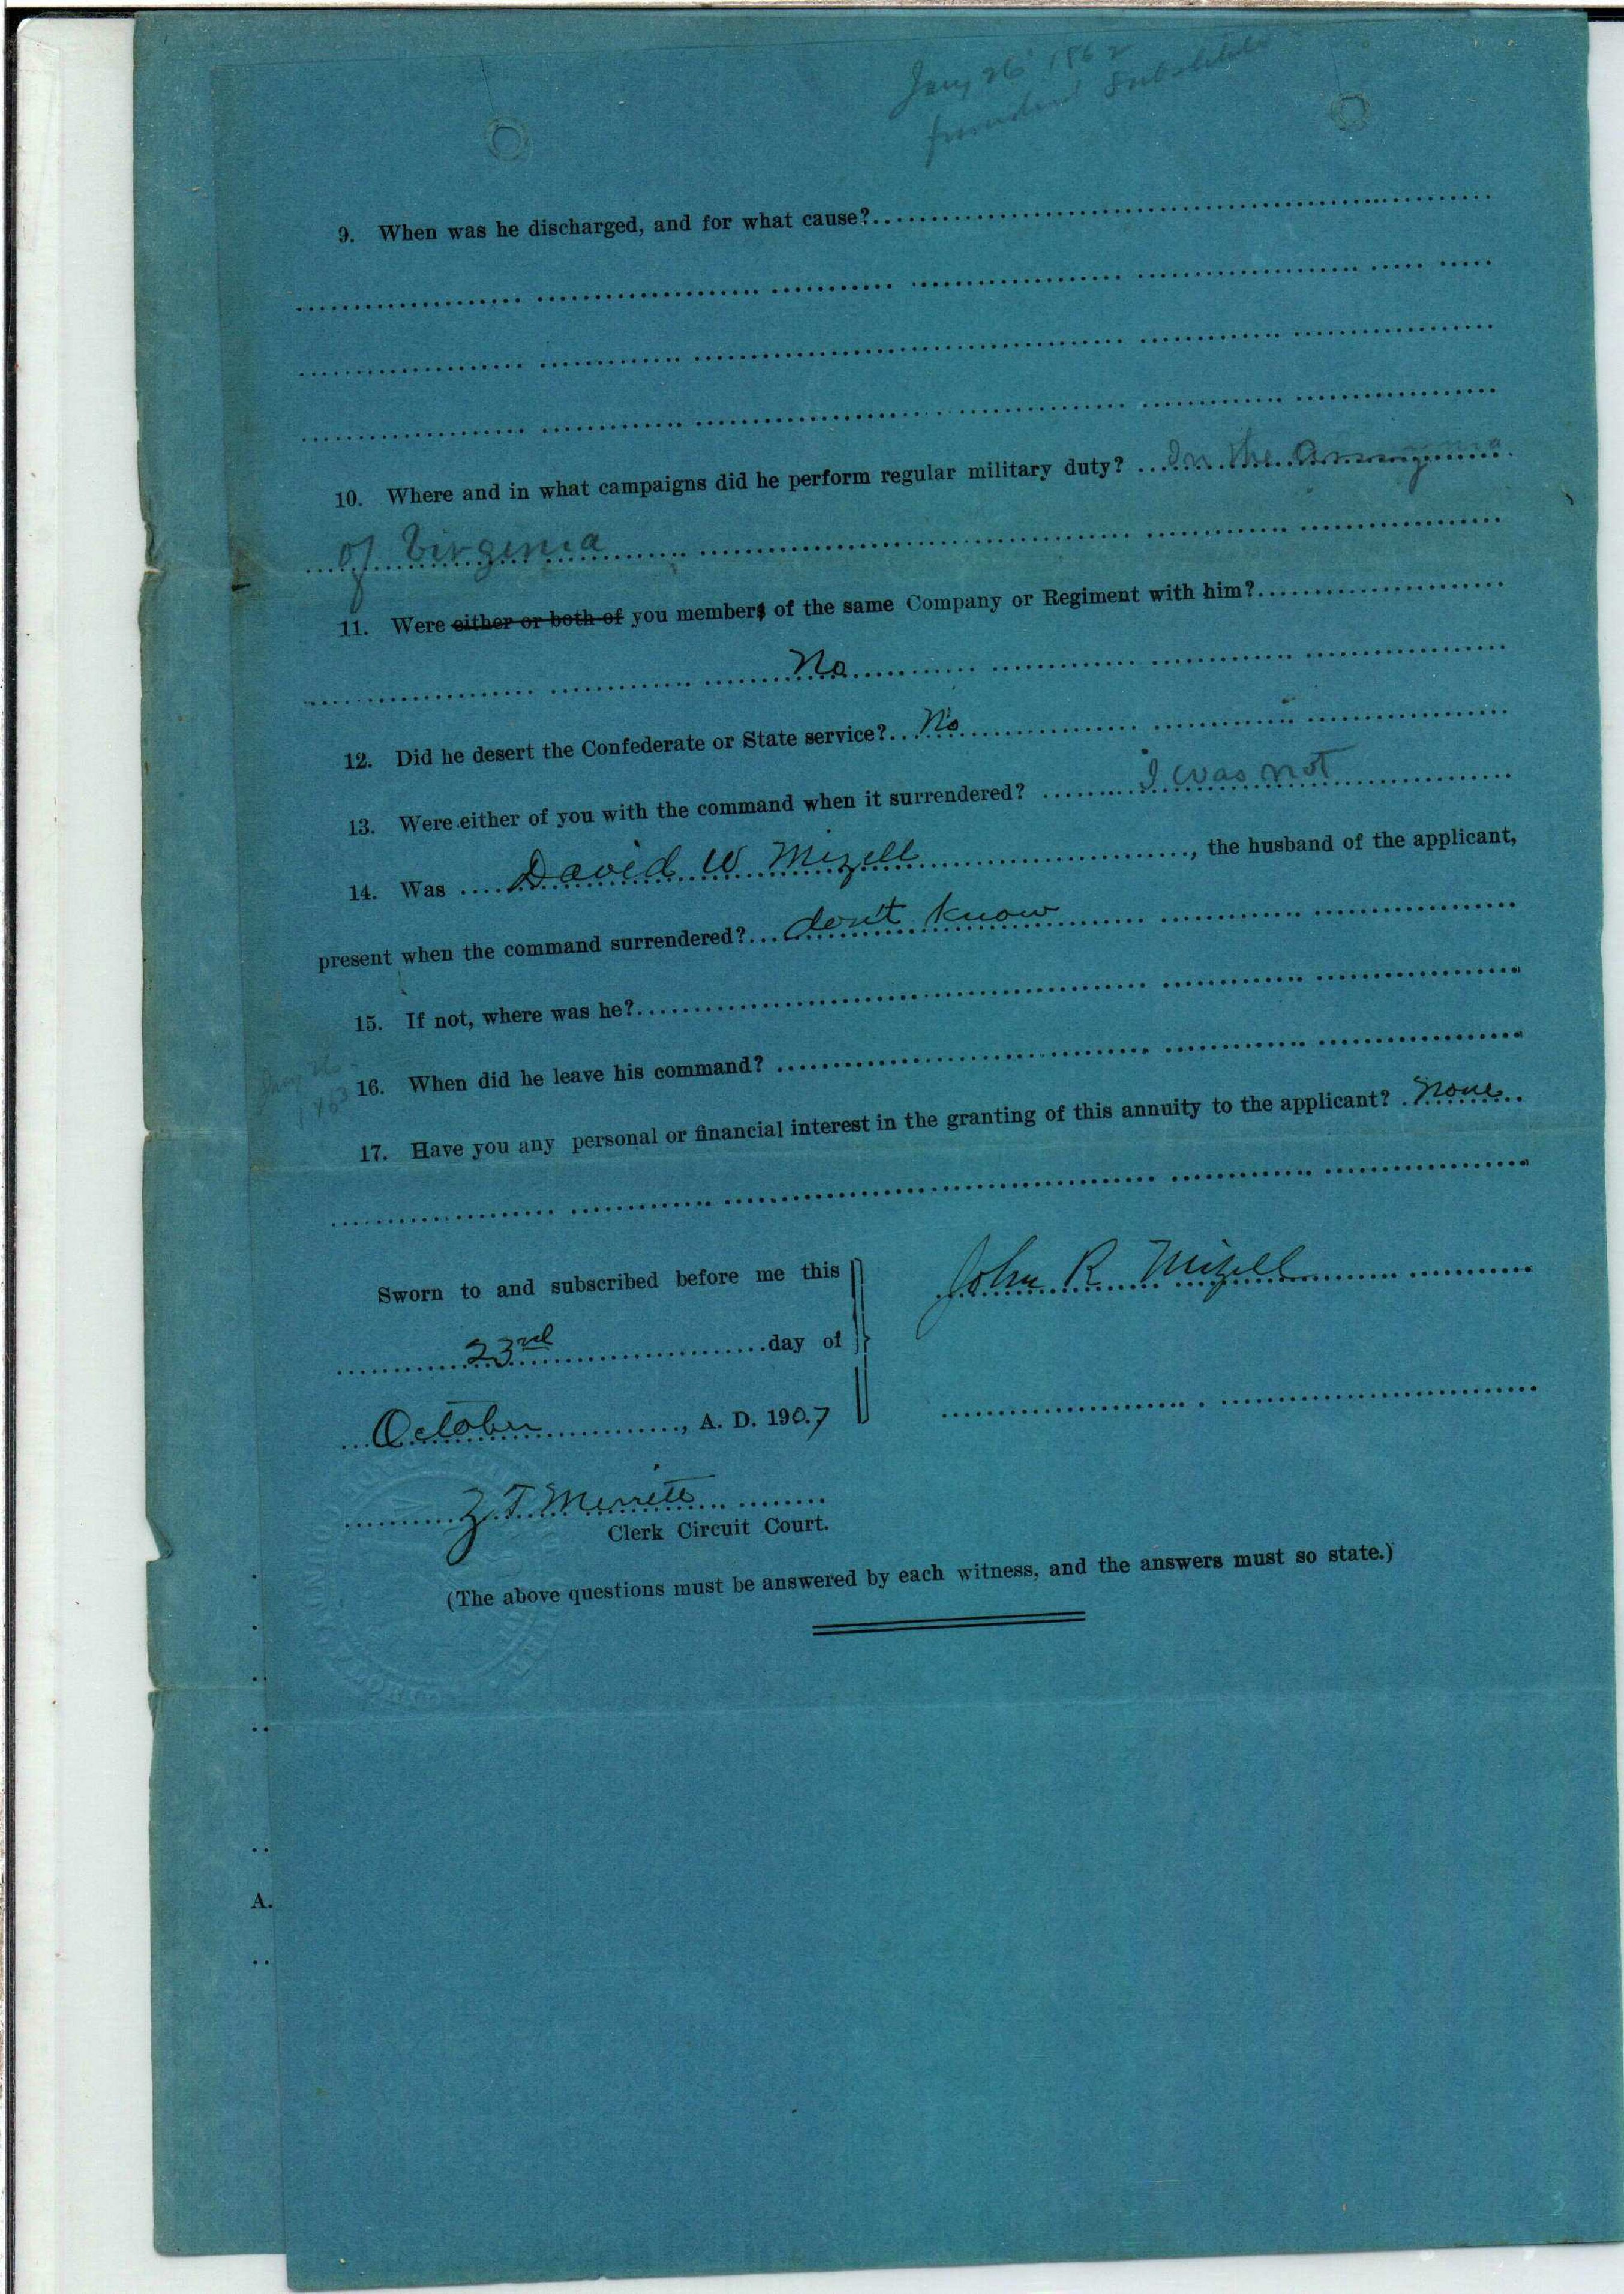 Jany 26 1862
furnished Substitute
9. When was he discharged, and for what cause?
10. Where and in what campaigns did he perform regular military duty? In the Army
of Virginia
11. Were either or both of you members of the same Company or Regiment with him?
No
12. Did he desert the Confederate or State service? No
13. Were either of you with the command when it surrendered? I was not
14. Was David W Mizell, the husband of the applicant,
present when the command surrendered? don't know
15. If not, where was he?
Jany 26
16. When did he leave his command?
1863
17. Have you any personal or financial interest in the granting of this annuity to the applicant? none
Sworn to and subscribed before me this
John R Mizell
23rd day of
October, A. D. 1907
Z T Merritt
Clerk Circuit Court.
(The above questions must be answered by each witness, and the answers must so state.)
A.